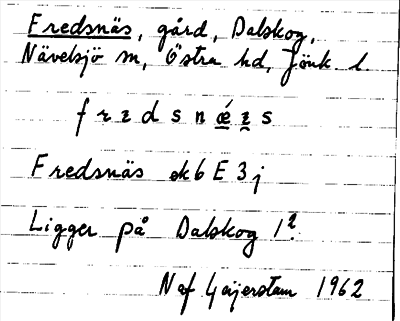 Fredsnäs, gård, Dalskog,
Nävelsjö sn, Östra hd, Jönk. l.
f r ɛ d s n ǽ ɛ s
Fredsnäs ekbl E 3 j
Ligger på Dalskog 1²
Naf Geijerstam 1962